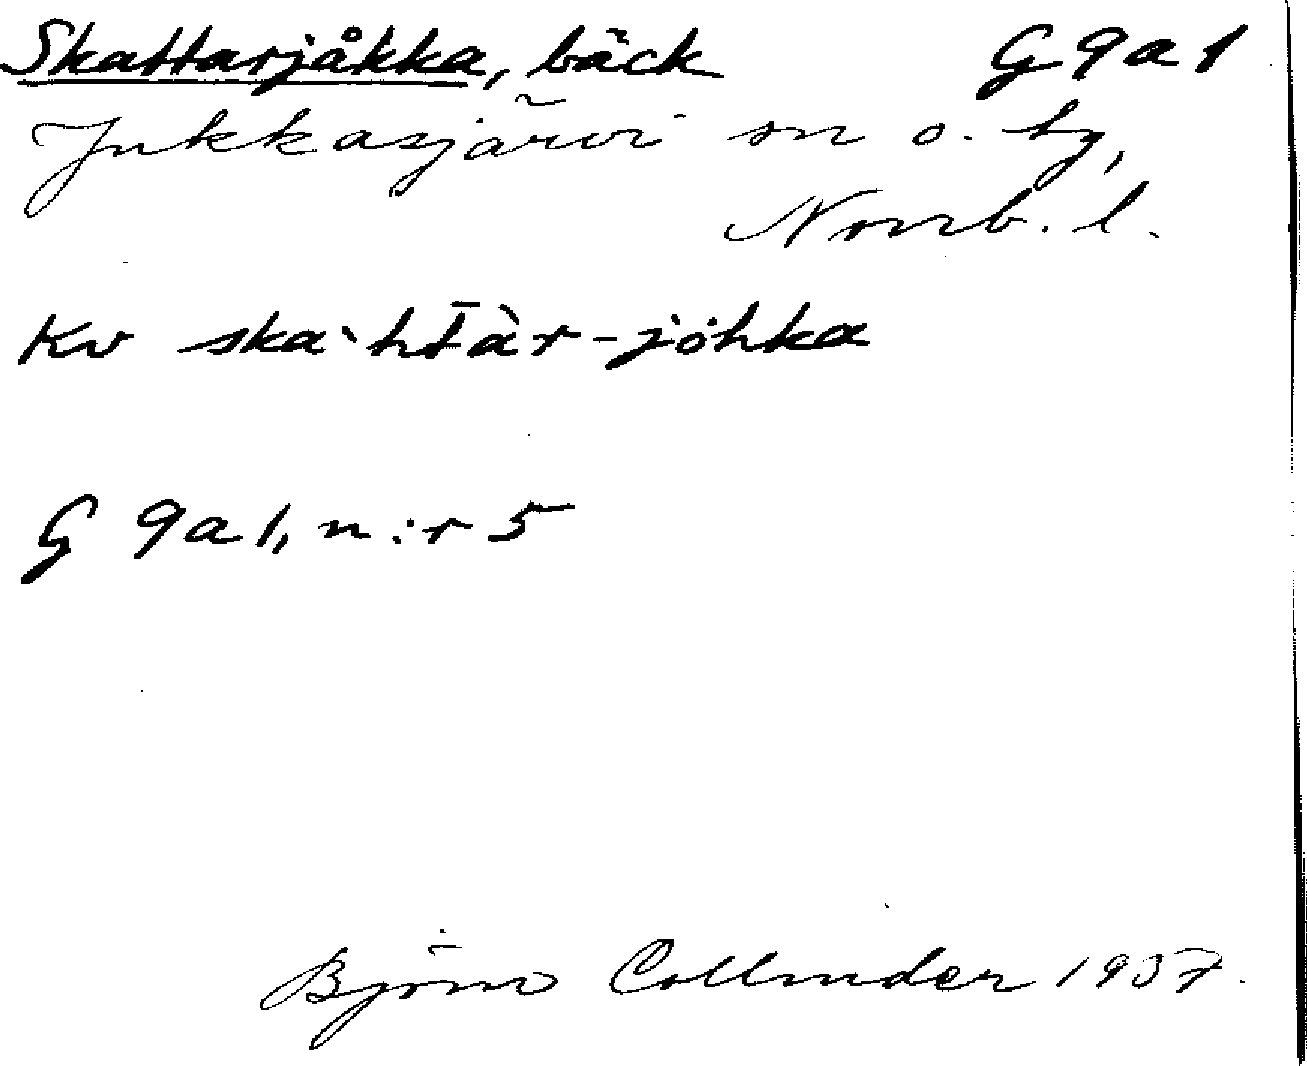 Skattarjåkka, bäck G 9 a 1
Jukkasjärvi sn o. tg,
Norrb. l.
Kv ska`ht̄àr-jȯhka
G 9 a 1, n:r 5
Björn Collinder 1937.